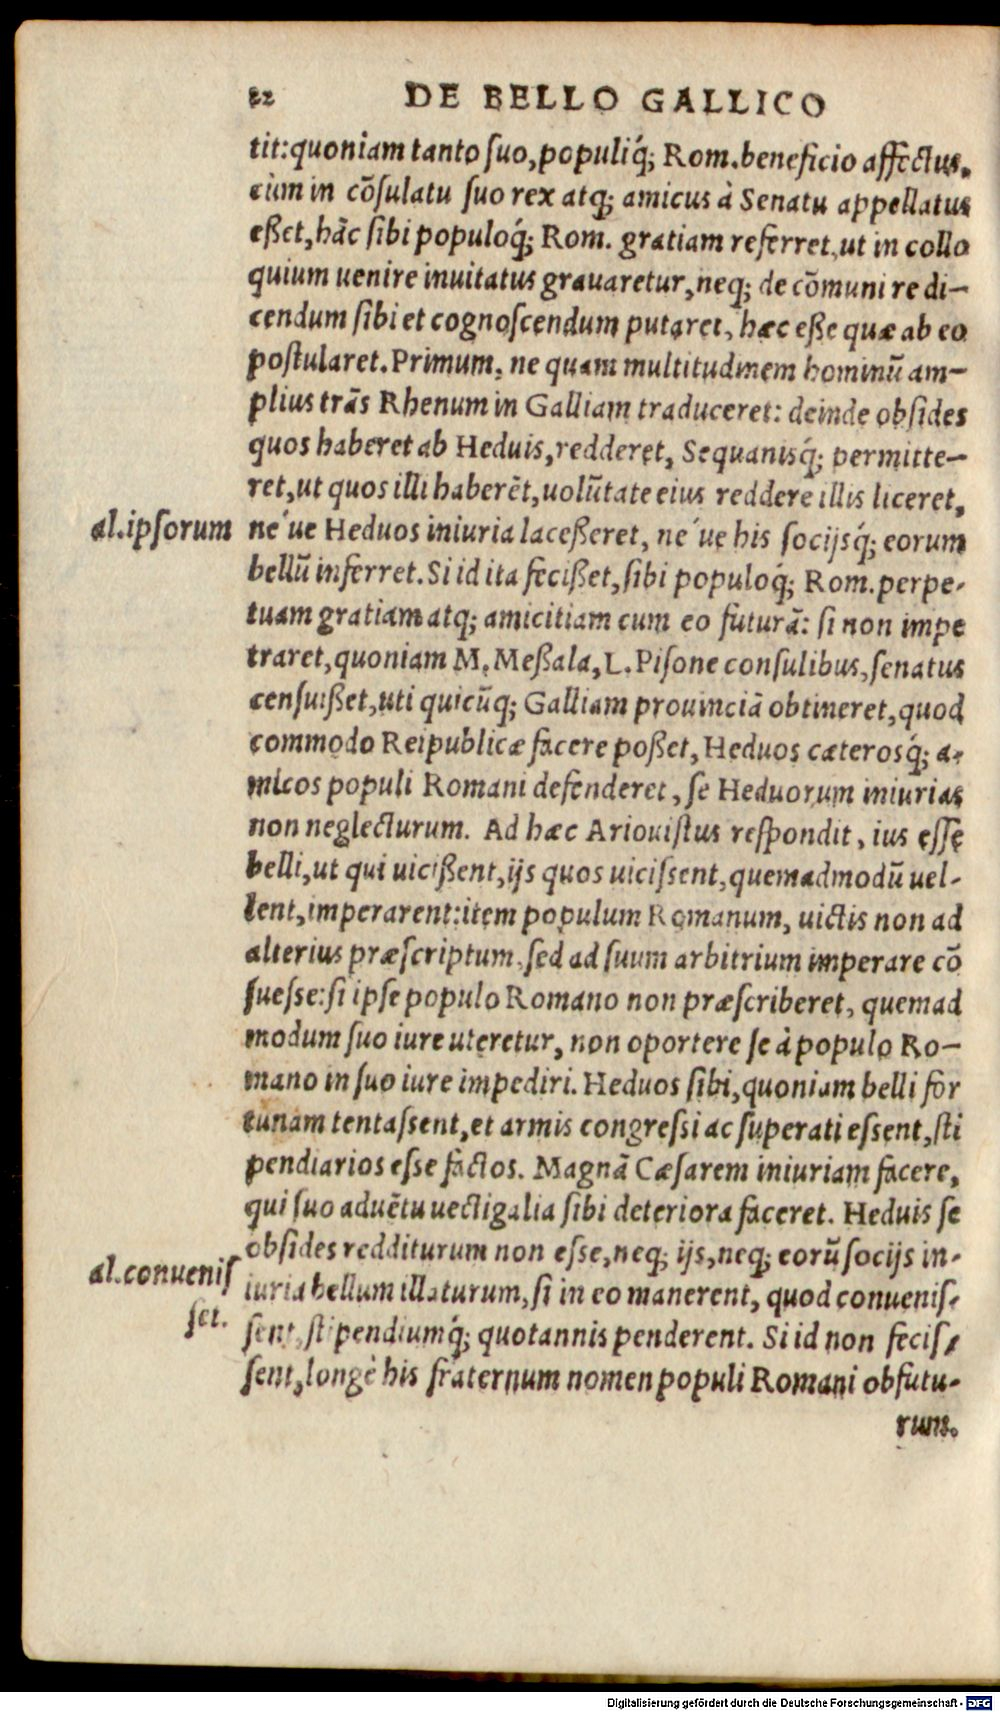 82 DE BELLO GALLICO
tit:quoniam tanto ſuo,populiq́; Rom.beneficio affectus,
cùm in cõſulatu ſuo rex atq; amicus à Senatu appellatus
eßet,hãc ſibi populoq́; Rom. gratiam referret,ut in collo
quium uenire inuitatus grauaretur,neq; de cõmuni re di-
cendum ſibi et cognoſcendum putaret, hæc eße quæ ab eo
poſtularet.Primum, ne quam multitudinem hominũ am-
plius trãs Rhenum in Galliam traduceret: deinde obſides
quos haberet ab Heduis,redderet, Sequanisq́; permitte-
ret,ut quos illi haberẽt,uolũtate eius reddere illis liceret,
al.ipſorum ne´ue Heduos iniuria laceßeret, ne´ue his ſocijsq́; eorum
bellũ inferret.Si id ita fecißet,ſibi populoq́; Rom.perpe-
tuam gratiam atq; amicitiam cum eo futurã: ſi non impe
traret,quoniam M.Meßala,L.Piſone conſulibus,ſenatus
cenſuißet,uti quicũq; Galliam prouinciã obtineret,quod
commodo Reipublicæ facere poßet,Heduos cæterosq́; a-
micos populi Romani defenderet, ſe Heduorum iniurias
non neglecturum. Ad hæc Ariouiſtus reſpondit, ius eſſe
belli,ut qui uicißent,ijs quos uiciſſent,quemadmodũ uel-
lent,imperarent:item populum Romanum, uictis non ad
alterius præſcriptum,ſed ad ſuum arbitrium imperare cõ
ſueſſe:ſi ipſe populo Romano non præſcriberet, quemad
modum ſuo iure uteretur, non oportere ſe à populo Ro-
mano in ſuo iure impediri. Heduos ſibi,quoniam belli for
tunam tentaſſent,et armis congreſſi ac ſuperati eſſent,ſti
pendiarios eſſe factos. Magnã Cæſarem iniuriam facere,
qui ſuo aduẽtu uectigalia ſibi deteriora faceret. Heduis ſe
obſides redditurum non eſſe,neq; ijs,neq; eorũ ſocijs in-
al.conueniſ
ſet.
iuria bellum illaturum,ſi in eo manerent, quod conueniſ-
ſent,ſtipendiumq́; quotannis penderent. Si id non feciſ-
ſent,longè his fraternum nomen populi Romani obfutu-
rum.
Digitalisierung gefördert durch die Deutsche Forschungsgemeinschaft - DFG